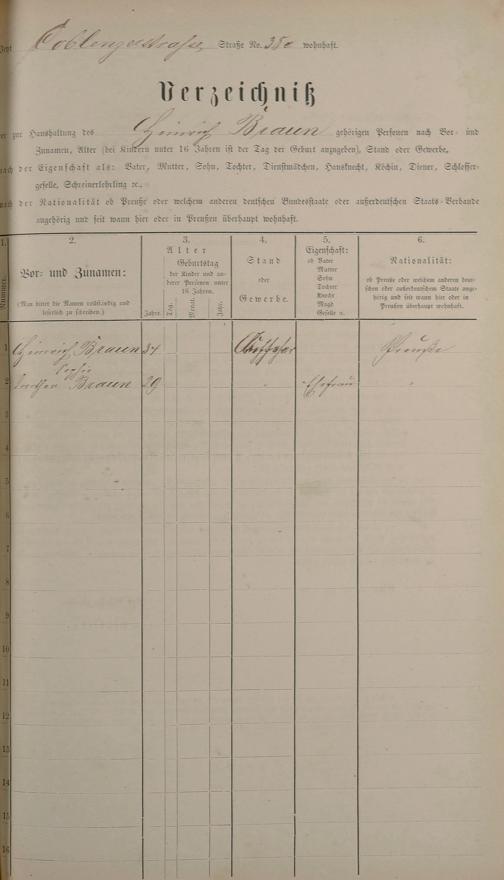 Jetzt Coblenzerstrasse Straße No. 38c wohnhaft.
Verzeichniß
der zur Haushaltung des Heinrich Braun gehörigen Personen nach Vor- und
Zunamen, Alter (bei Kindern unter 16 Jahren ist der Tag der Geburt anzugeben), Stand oder Gewerbe,
nach der Eigenschaft als: Vater, Mutter, Sohn, Tochter, Dienstmädchen, Hausknecht, Köchin, Diener, Schlosser-
geselle, Schreinerlehrling ꝛc.,
nach der Nationalität ob Preuße oder welchem anderen deutschen Bundesstaate oder außerdeutschen Staats-Verbande
angehörig und seit wann hier oder in Preußen überhaupt wohnhaft.
1.
Nummer.
2.
Vor- und Zunamen:
(Man bittet die Namen vollständig und
leserlich zu schreiben.)
3.
Alter
Geburtstag
der Kinder und an-
derer Personen unter
16 Jahren.
Jahre.
Tag.
Monat.
Jahr.
4.
Stand
oder
Gewerbe.
5.
Eigenschaft:
ob Vater
Mutter
Sohn
Tochter
Knecht
Magd
Geselle ꝛc.
6.
Nationalität:
ob Preuße oder welchem anderen deut-
schen oder außerdeutschen Staate ange-
hörig und seit wann hier oder in
Preußen überhaupt wohnhaft.
1 Heinrich Braun 34 Aufseher Preuße
Sophie
2 Braun 29 " Ehefrau "
3
4
5
6
7
8
9
10
11
12
13
14
15
16